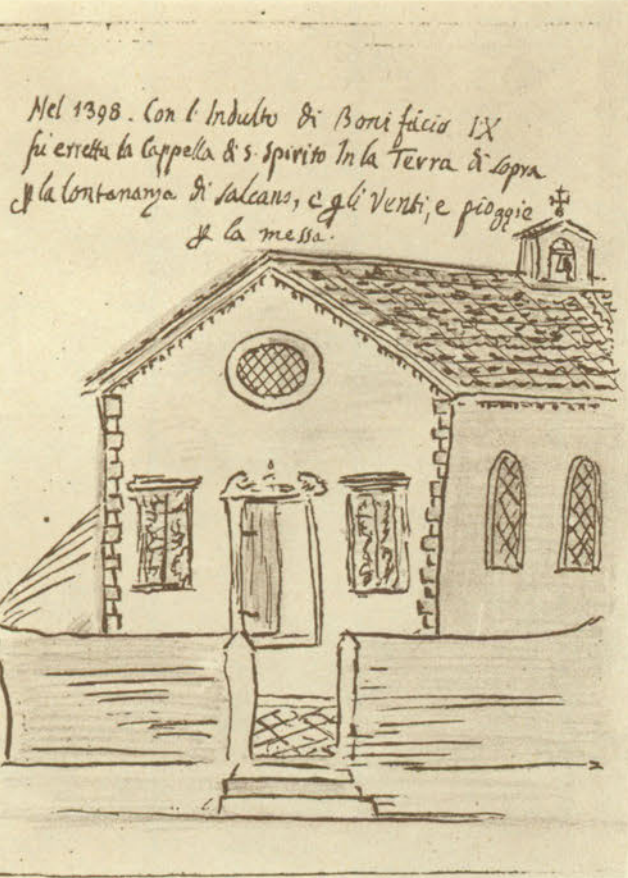 Nel 1398. Con l Indulto di Bonifacio IX
fu eretta la Cappella di S. Spirito In la Terra di sopra
ꝑ la lontananza di Salcano, e ꝑ gli Venti, e pioggie
ꝑ la messa.